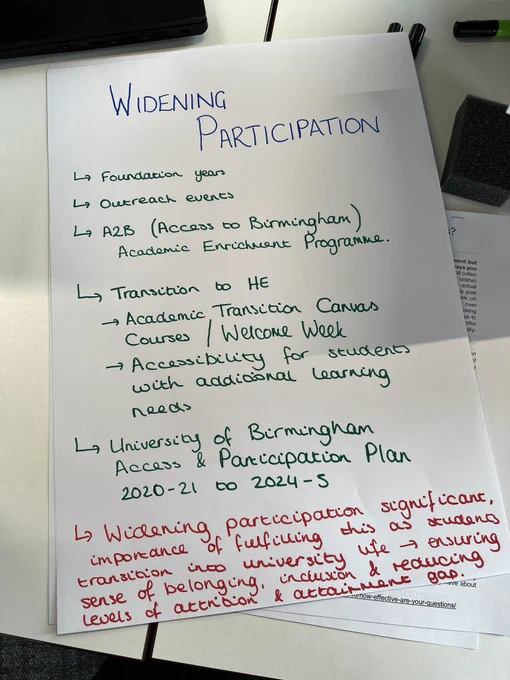 WIDENING
PARTICIPATION
↳ Foundation years
↳ Outreach events
↳ A2B (Access to Birmingham)
Academic Enrichment Programme.
↳ Transition to HE
→ Academic Transition Canvas
Courses / Welcome Week
→ Accessibility for students
with additional learning
needs
↳ University of Birmingham
Access & Participation Plan
2020-21 to 2024-5
↳ Widening participation significant,
importance of fulfilling this as students
transition into university life → ensuring
sense of belonging, inclusion & reducing
levels of attrition & attainment gap.
about
-effective-are-your-questions/